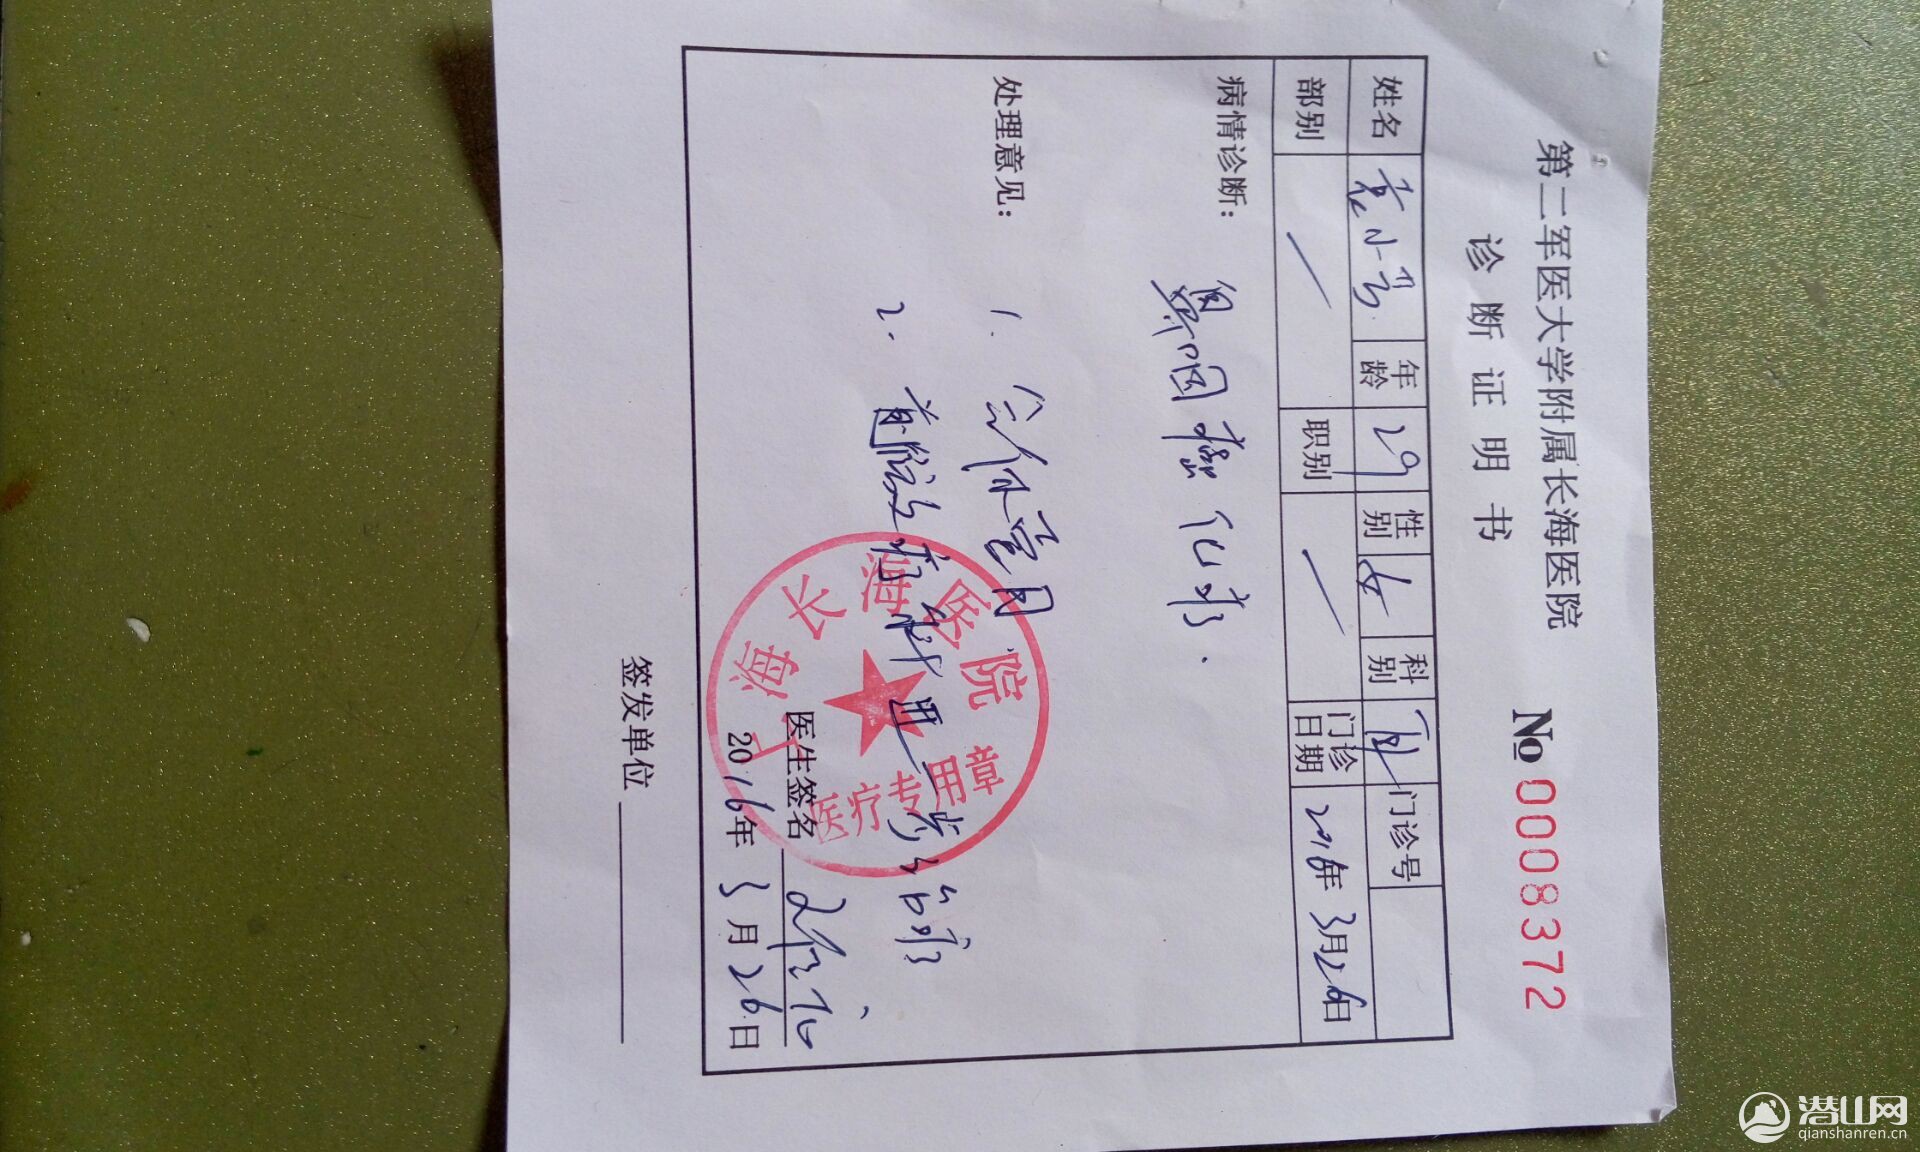 第二军医大学附属长海医院
诊断证明书
№ 0008372
姓名 袁小芳 年龄 29 性别 女 科别 门诊号
部别 / 职别 / 门诊日期 2016年3月26日
病情诊断：
鼻咽癌化疗.
处理意见：
1. 全休壹月
2.
医生签名
2016年3月26日
签发单位
上海长海医院
医疗专用章
潜山网
qianshanren.cn